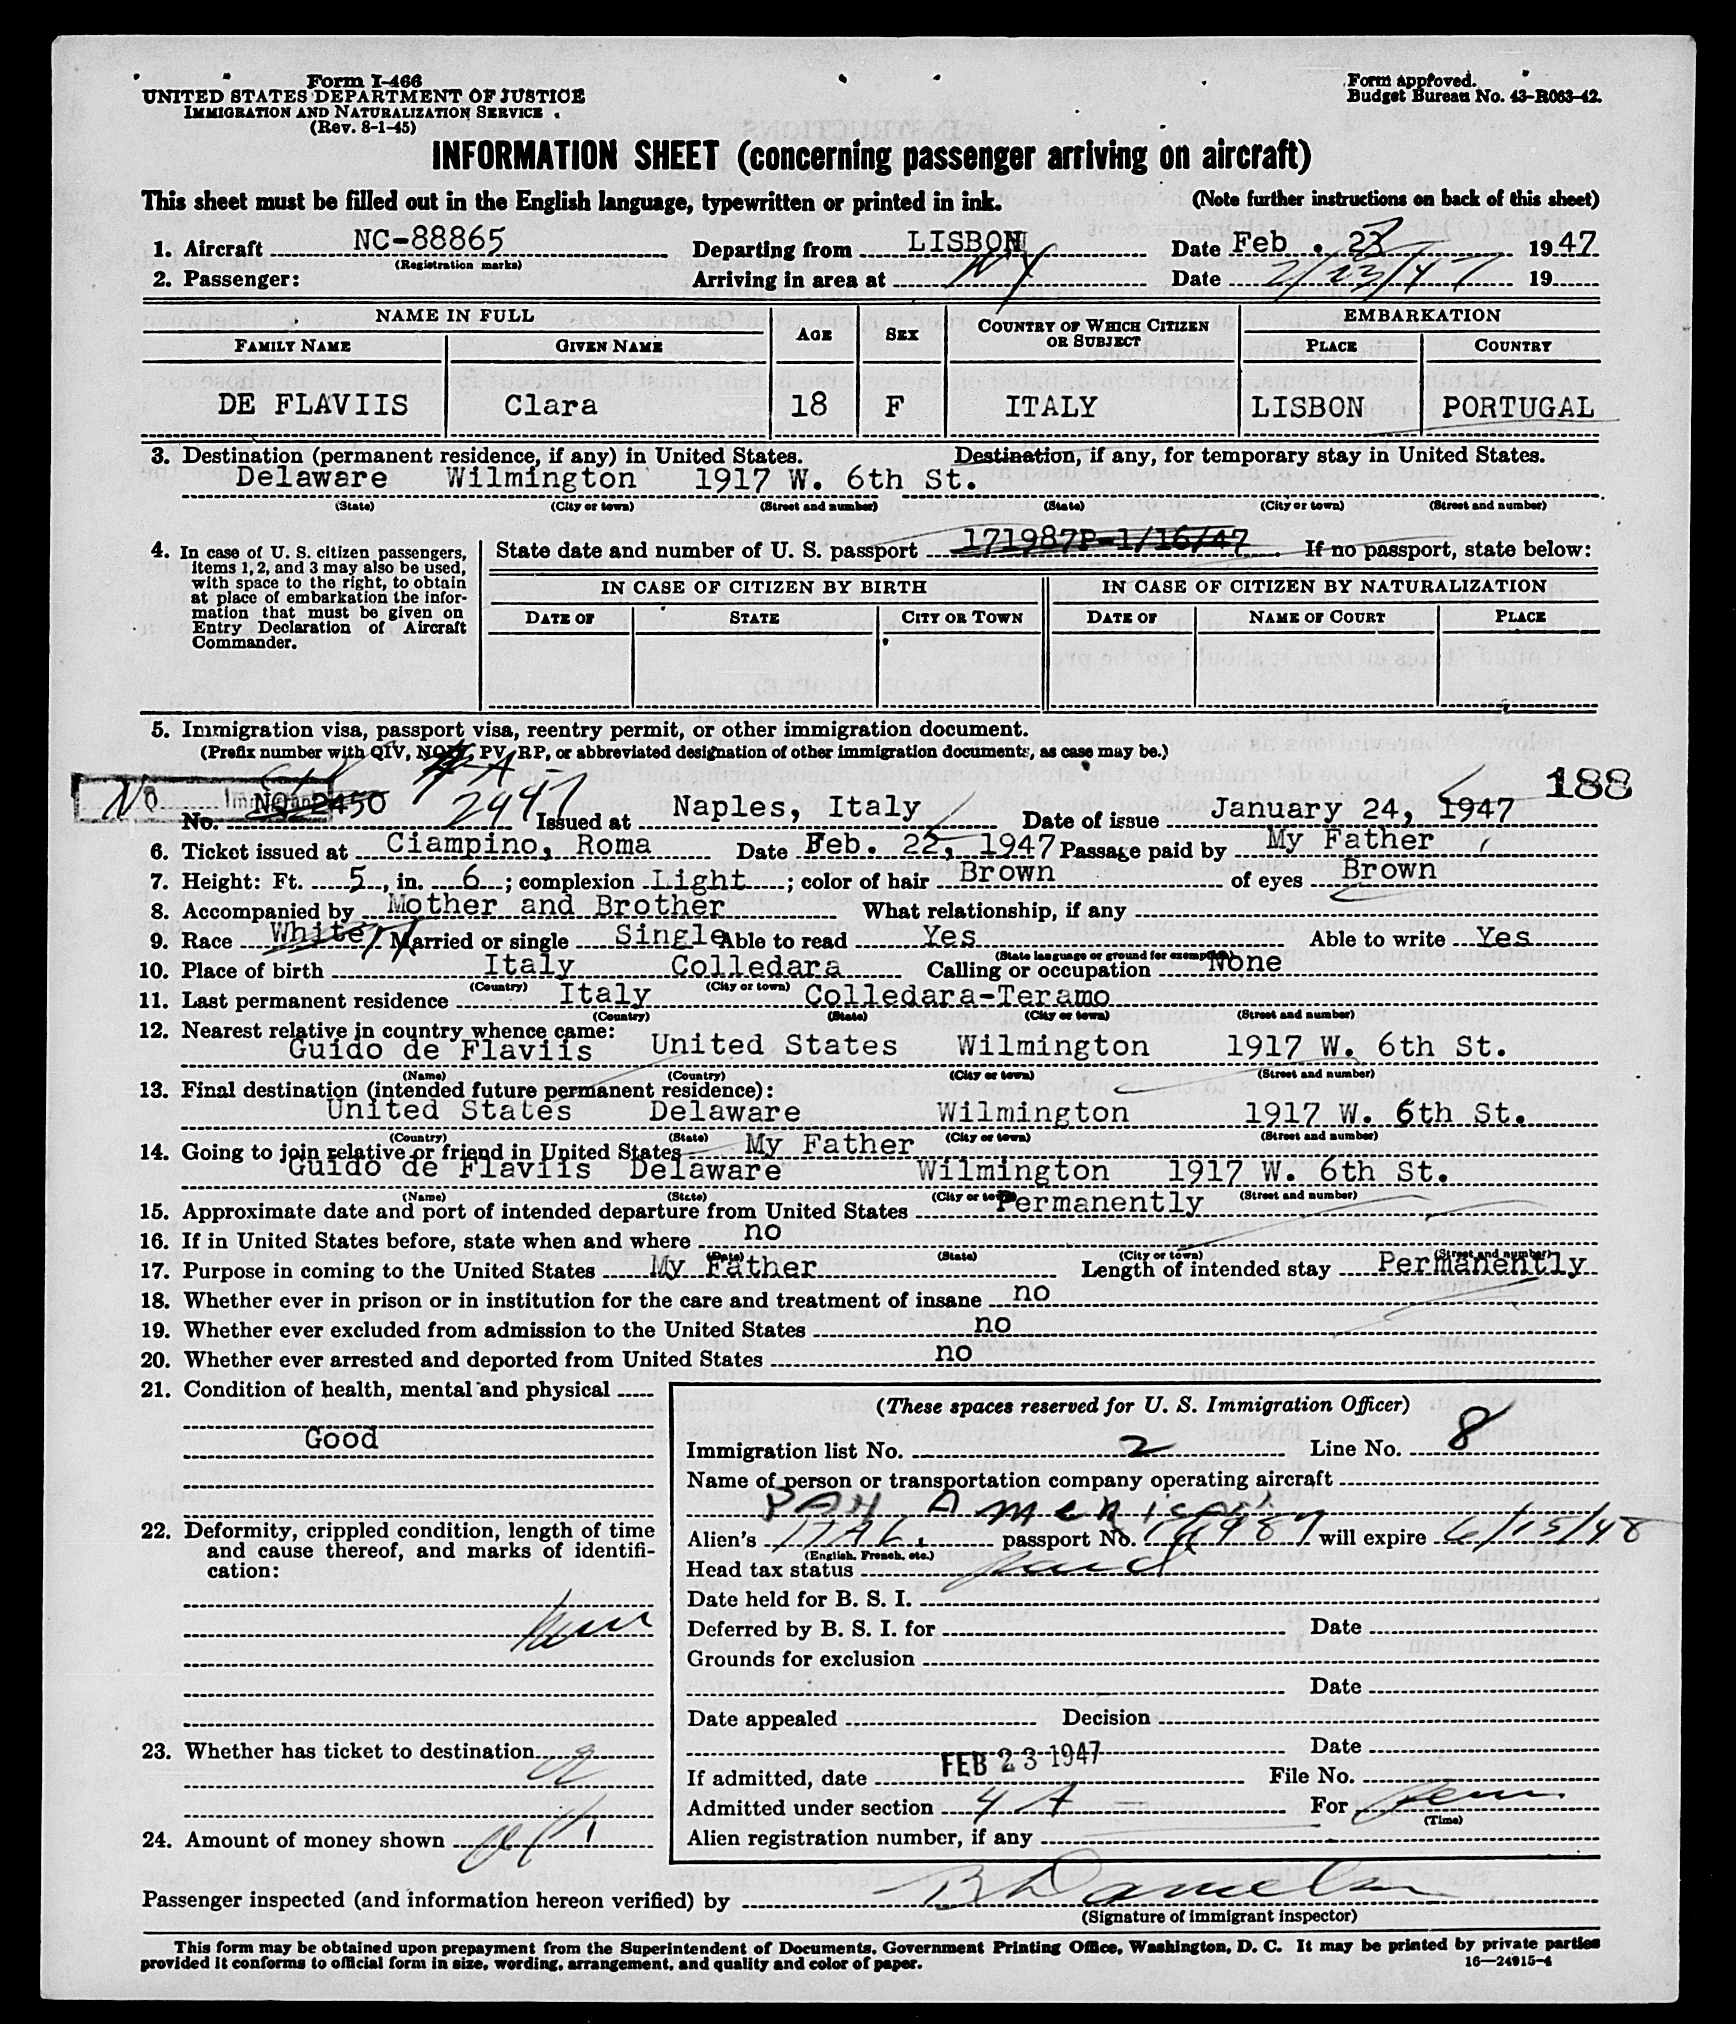 Form I-466
UNITED STATES DEPARTMENT OF JUSTICE
IMMIGRATION AND NATURALIZATION SERVICE
(Rev. 8-1-45)
Form approved.
Budget Bureau No. 43-R063-42.
INFORMATION SHEET (concerning passenger arriving on aircraft)
This sheet must be filled out in the English language, typewritten or printed in ink.
(Note further instructions on back of this sheet)
1. Aircraft NC-88865 Departing from LISBON Date Feb. 23 1947
(Registration marks)
2. Passenger: Arriving in area at NY Date 2/23/47 19
NAME IN FULL AGE SEX COUNTRY OF WHICH CITIZEN OR SUBJECT EMBARKATION
FAMILY NAME GIVEN NAME PLACE COUNTRY
DE FLAVIIS Clara 18 F ITALY LISBON PORTUGAL
3. Destination (permanent residence, if any) in United States. Destination, if any, for temporary stay in United States.
Delaware Wilmington 1917 W. 6th St.
(State) (City or town) (Street and number) (State) (City or town) (Street and number)
4. In case of U. S. citizen passengers, items 1, 2, and 3 may also be used, with space to the right, to obtain at place of embarkation the information that must be given on Entry Declaration of Aircraft Commander.
State date and number of U. S. passport 171987P-1/16/47. If no passport, state below:
IN CASE OF CITIZEN BY BIRTH IN CASE OF CITIZEN BY NATURALIZATION
DATE OF STATE CITY OR TOWN DATE OF NAME OF COURT PLACE
5. Immigration visa, passport visa, reentry permit, or other immigration document.
(Prefix number with QIV, NQIV, PV, RP, or abbreviated designation of other immigration documents, as case may be.)
188
No. NO 2450 2447 Issued at Naples, Italy Date of issue January 24, 1947
6. Ticket issued at Ciampino, Roma Date Feb. 22, 1947 Passage paid by My Father
7. Height: Ft. 5, in. 6; complexion Light; color of hair Brown of eyes Brown
8. Accompanied by Mother and Brother What relationship, if any
9. Race White Married or single Single Able to read Yes Able to write Yes
(State language or ground for exemption)
10. Place of birth Italy Colledara Calling or occupation None
(Country) (City or town)
11. Last permanent residence Italy Colledara-Teramo
(Country) (State) (City or town) (Street and number)
12. Nearest relative in country whence came:
Guido de Flaviis United States Wilmington 1917 W. 6th St.
(Name) (Country) (City or town) (Street and number)
13. Final destination (intended future permanent residence):
United States Delaware Wilmington 1917 W. 6th St.
(Country) (State) (City or town) (Street and number)
14. Going to join relative or friend in United States My Father
Guido de Flaviis Delaware Wilmington 1917 W. 6th St.
(Name) (State) (City or town) (Street and number)
15. Approximate date and port of intended departure from United States Permanently
16. If in United States before, state when and where no
(Date) (State) (City or town) (Street and number)
17. Purpose in coming to the United States My Father Length of intended stay Permanently
18. Whether ever in prison or in institution for the care and treatment of insane no
19. Whether ever excluded from admission to the United States no
20. Whether ever arrested and deported from United States no
21. Condition of health, mental and physical
Good
22. Deformity, crippled condition, length of time and cause thereof, and marks of identification:
23. Whether has ticket to destination
24. Amount of money shown
(These spaces reserved for U. S. Immigration Officer)
Immigration list No. 2 Line No. 8
Name of person or transportation company operating aircraft
PAN AMERICAN
Alien's ITAL. passport No. will expire 6/15/48
(English, French, etc.)
Head tax status paid
Date held for B. S. I.
Deferred by B. S. I. for Date
Grounds for exclusion
Date
Date appealed Decision
Date
If admitted, date FEB 23 1947 File No.
Admitted under section 4A For Perm.
(Time)
Alien registration number, if any
Passenger inspected (and information hereon verified) by
(Signature of immigrant inspector)
This form may be obtained upon prepayment from the Superintendent of Documents, Government Printing Office, Washington, D. C. It may be printed by private parties
provided it conforms to official form in size, wording, arrangement, and quality and color of paper.
16—24915-4